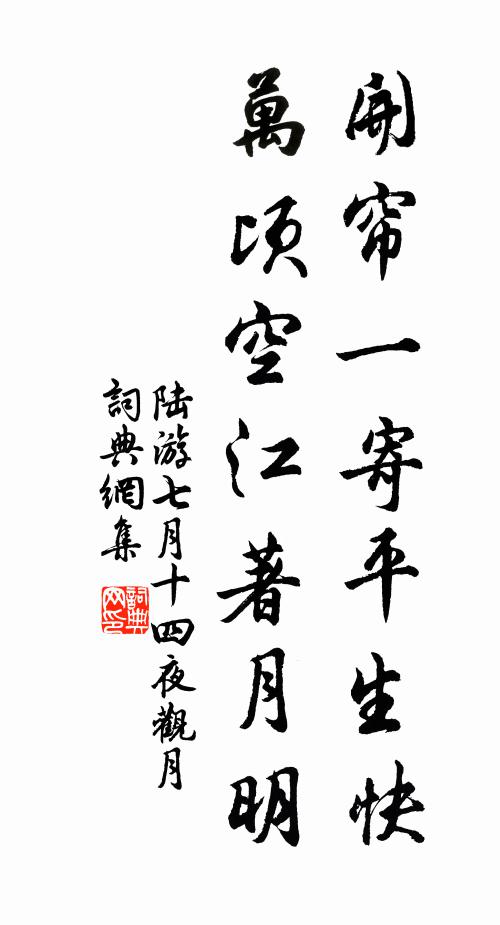 開帘一寄平生快
萬頃空江著月明
陆游七月十四夜觀月
詞典網集
詞典
网印